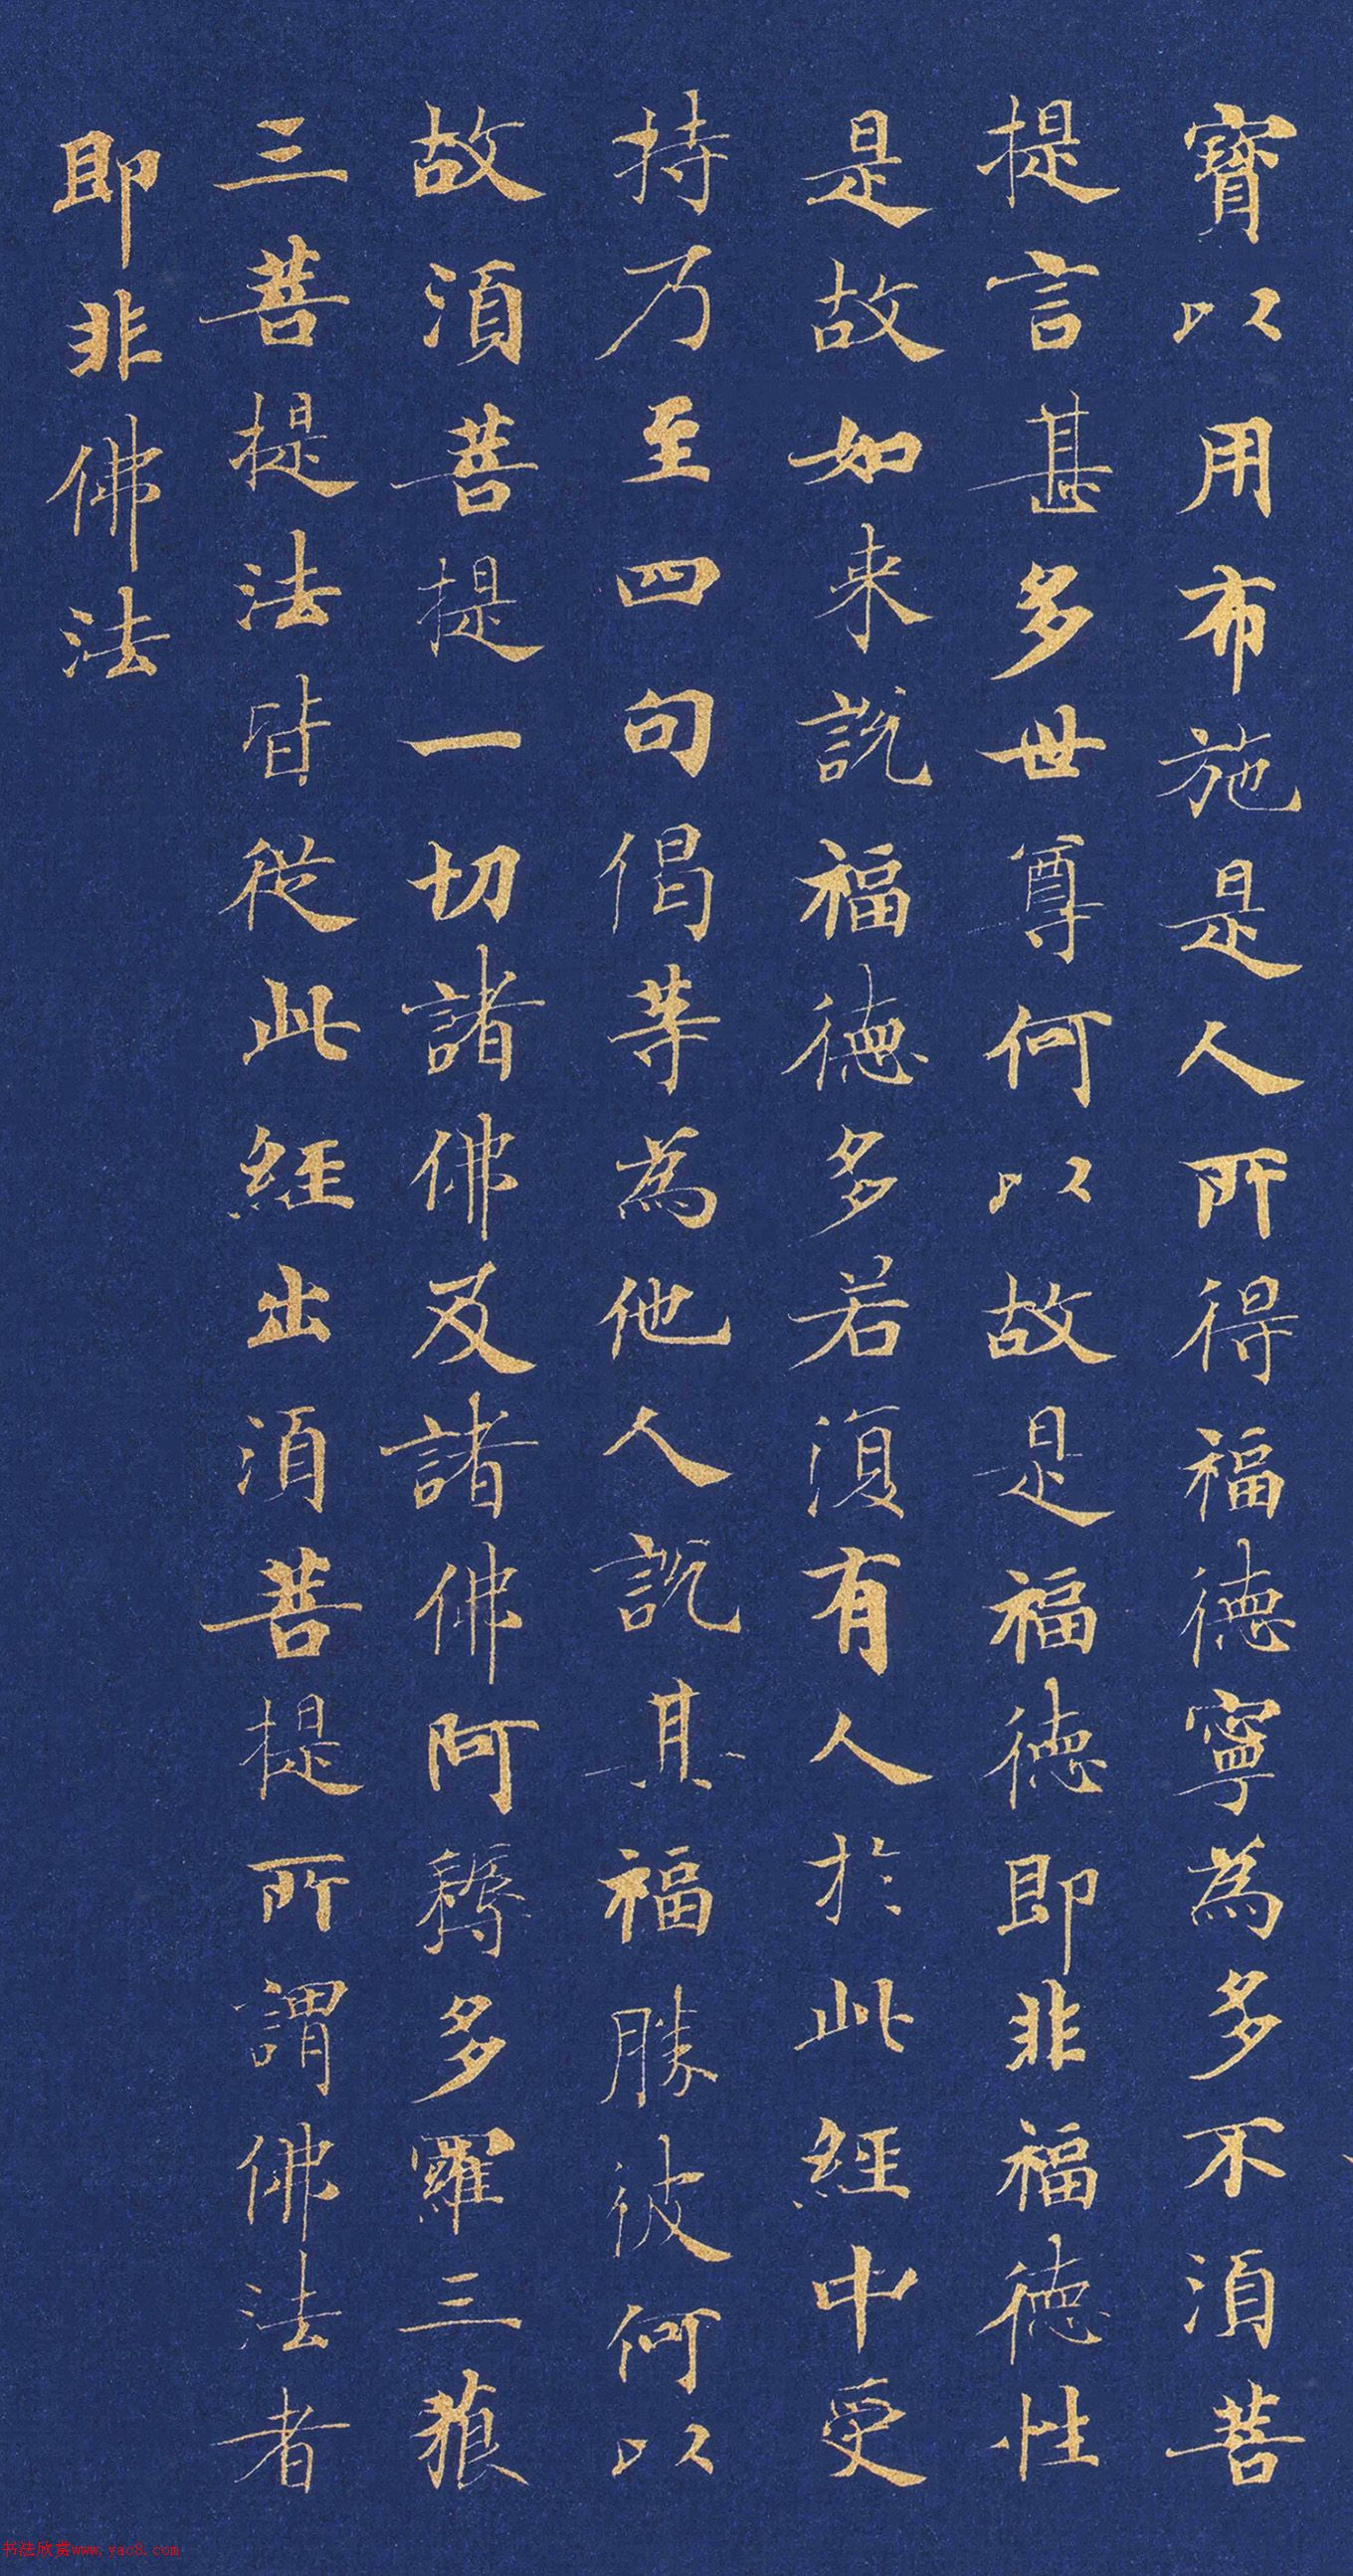 寶以用布施是人所得福德寧為多不須菩
提言甚多世尊何以故是福德即非福德性
是故如来說福德多若復有人於此經中受
持乃至四句偈等為他人說其福勝彼何以
故須菩提一切諸佛及諸佛阿耨多羅三藐
三菩提法皆從此經出須菩提所謂佛法者
即非佛法
书法欣赏www.yac8.com